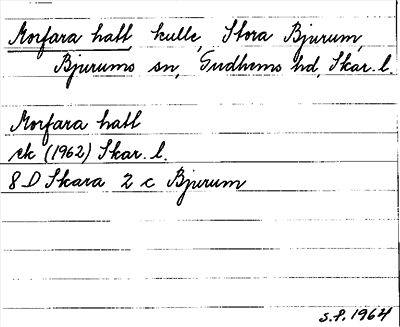 Morfara hatt kulle, Stora Bjurum,
Bjurums sn, Gudhems hd, Skar. l.
Morfara hatt
ek (1962) Skar. l.
8 D Skara 2 c Bjurum
S.P. 1964